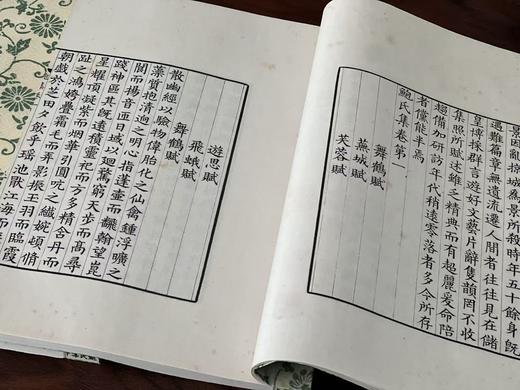 景因亂掠城爲景所殺時年五十餘身旣
遇難篇章無遺流遷人間者往往見在儲
皇博採羣言遊好文藝片辭隻韻罔不收
集照所賦述雖乏精典而有超麗爰命陪
趨備加研訪年代稍遠零落者多今所存
者儻能半焉
鮑氏集卷第一
舞鶴賦
蕪城賦
芙蓉賦
遊思賦
飛蛾賦
舞鶴賦
散幽經以驗物偉胎化之仙禽鍾浮曠之
藻質抱清迥之明心指蓬壺而翻翰望崑
閬而揚音帀日域以迴騖窮天步而高尋
踐神區其旣遠積靈祀而方多精含丹而
星曜頂凝紫而烟華引圓吭之纖婉頓脩
趾之鴻姱疊霜毛而弄影振玉羽而臨霞
朝戲於芝田夕飲乎瑶池厭江海而